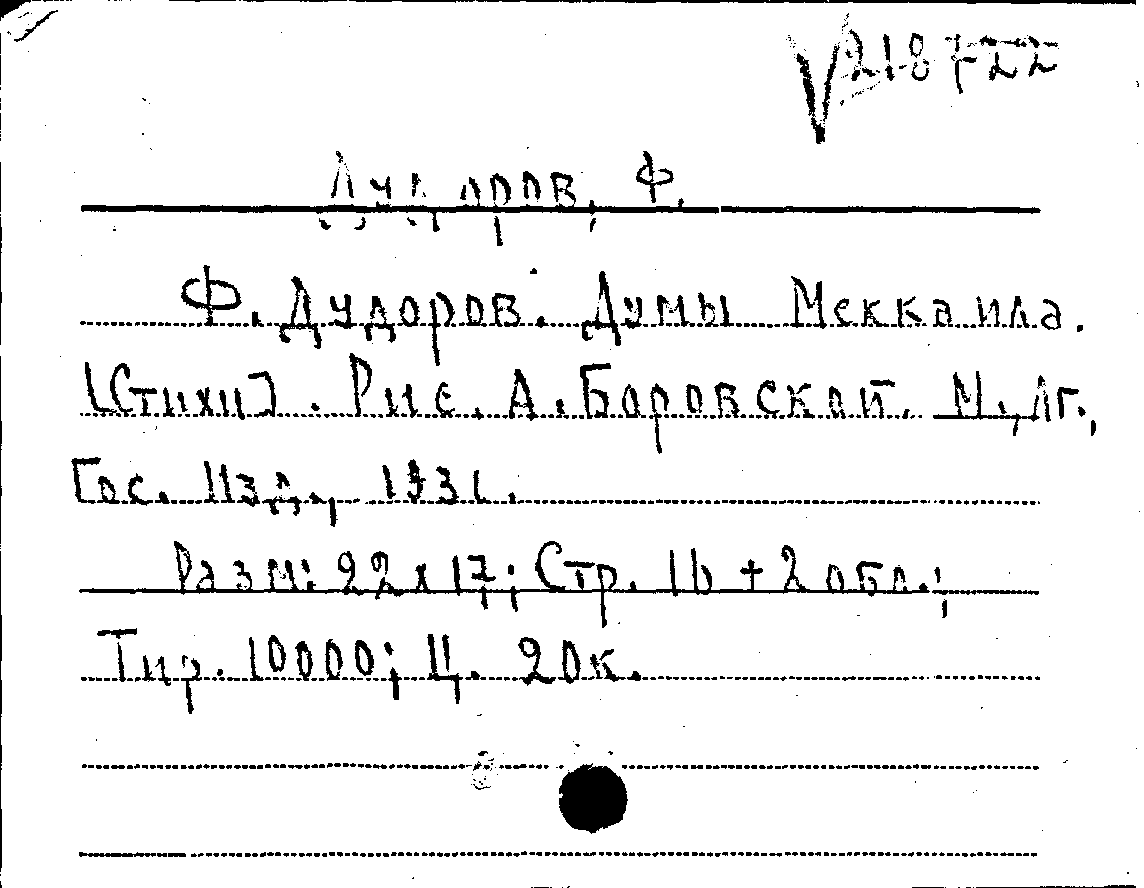 218722
Дудоров, Ф.
Ф. Дудоров. Думы Меккаила.
[Стихи]. Рис. А. Боровской. М., Лг.,
Гос. Изд., 1931.
Разм: 22х17; Стр. 16 + 2 обл.;
Тир. 10000; Ц. 20к.